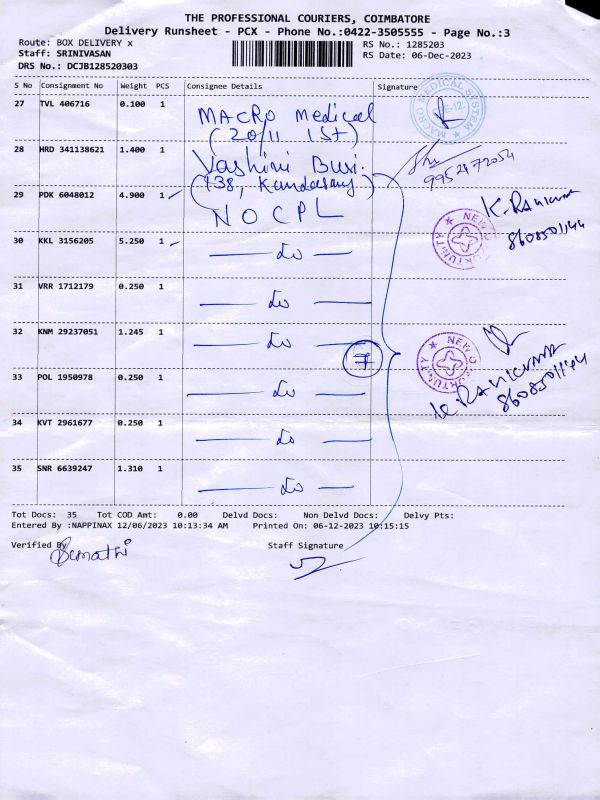 THE PROFESSIONAL COURIERS, COIMBATORE
Delivery Runsheet - PCX - Phone No.:0422-3505555 - Page No.:3
Route: BOX DELIVERY x
RS No.: 1285203
Staff: SRINIVASAN
RS Date: 06-Dec-2023
DRS No.: DCJB128520303
S No Consignment No Weight PCS Consignee Details Signature
27 TVL 406716 0.100 1 MACRO Medical
(20/11 1st)
MACRO MEDICAL SYSTEM
28 HRD 341138621 1.400 1 Vashini Busi.
(138, Kandasamy)
9952472054
29 PDK 6048012 4.900 1 NOCPL
K. RANICUMA
8608501144
30 KKL 3156205 5.250 1 — Do —
31 VRR 1712179 0.250 1 — Do —
32 KNM 29237051 1.245 1 — Do —
7
33 POL 1950978 0.250 1 — Do —
K. RANICUMA
8608501144
34 KVT 2961677 0.250 1 — Do —
35 SNR 6639247 1.310 1 — Do —
Tot Docs: 35 Tot COD Amt: 0.00 Delvd Docs: Non Delvd Docs: Delvy Pts:
Entered By :NAPPINAX 12/06/2023 10:13:34 AM Printed On: 06-12-2023 10:15:15
Verified By
Staff Signature